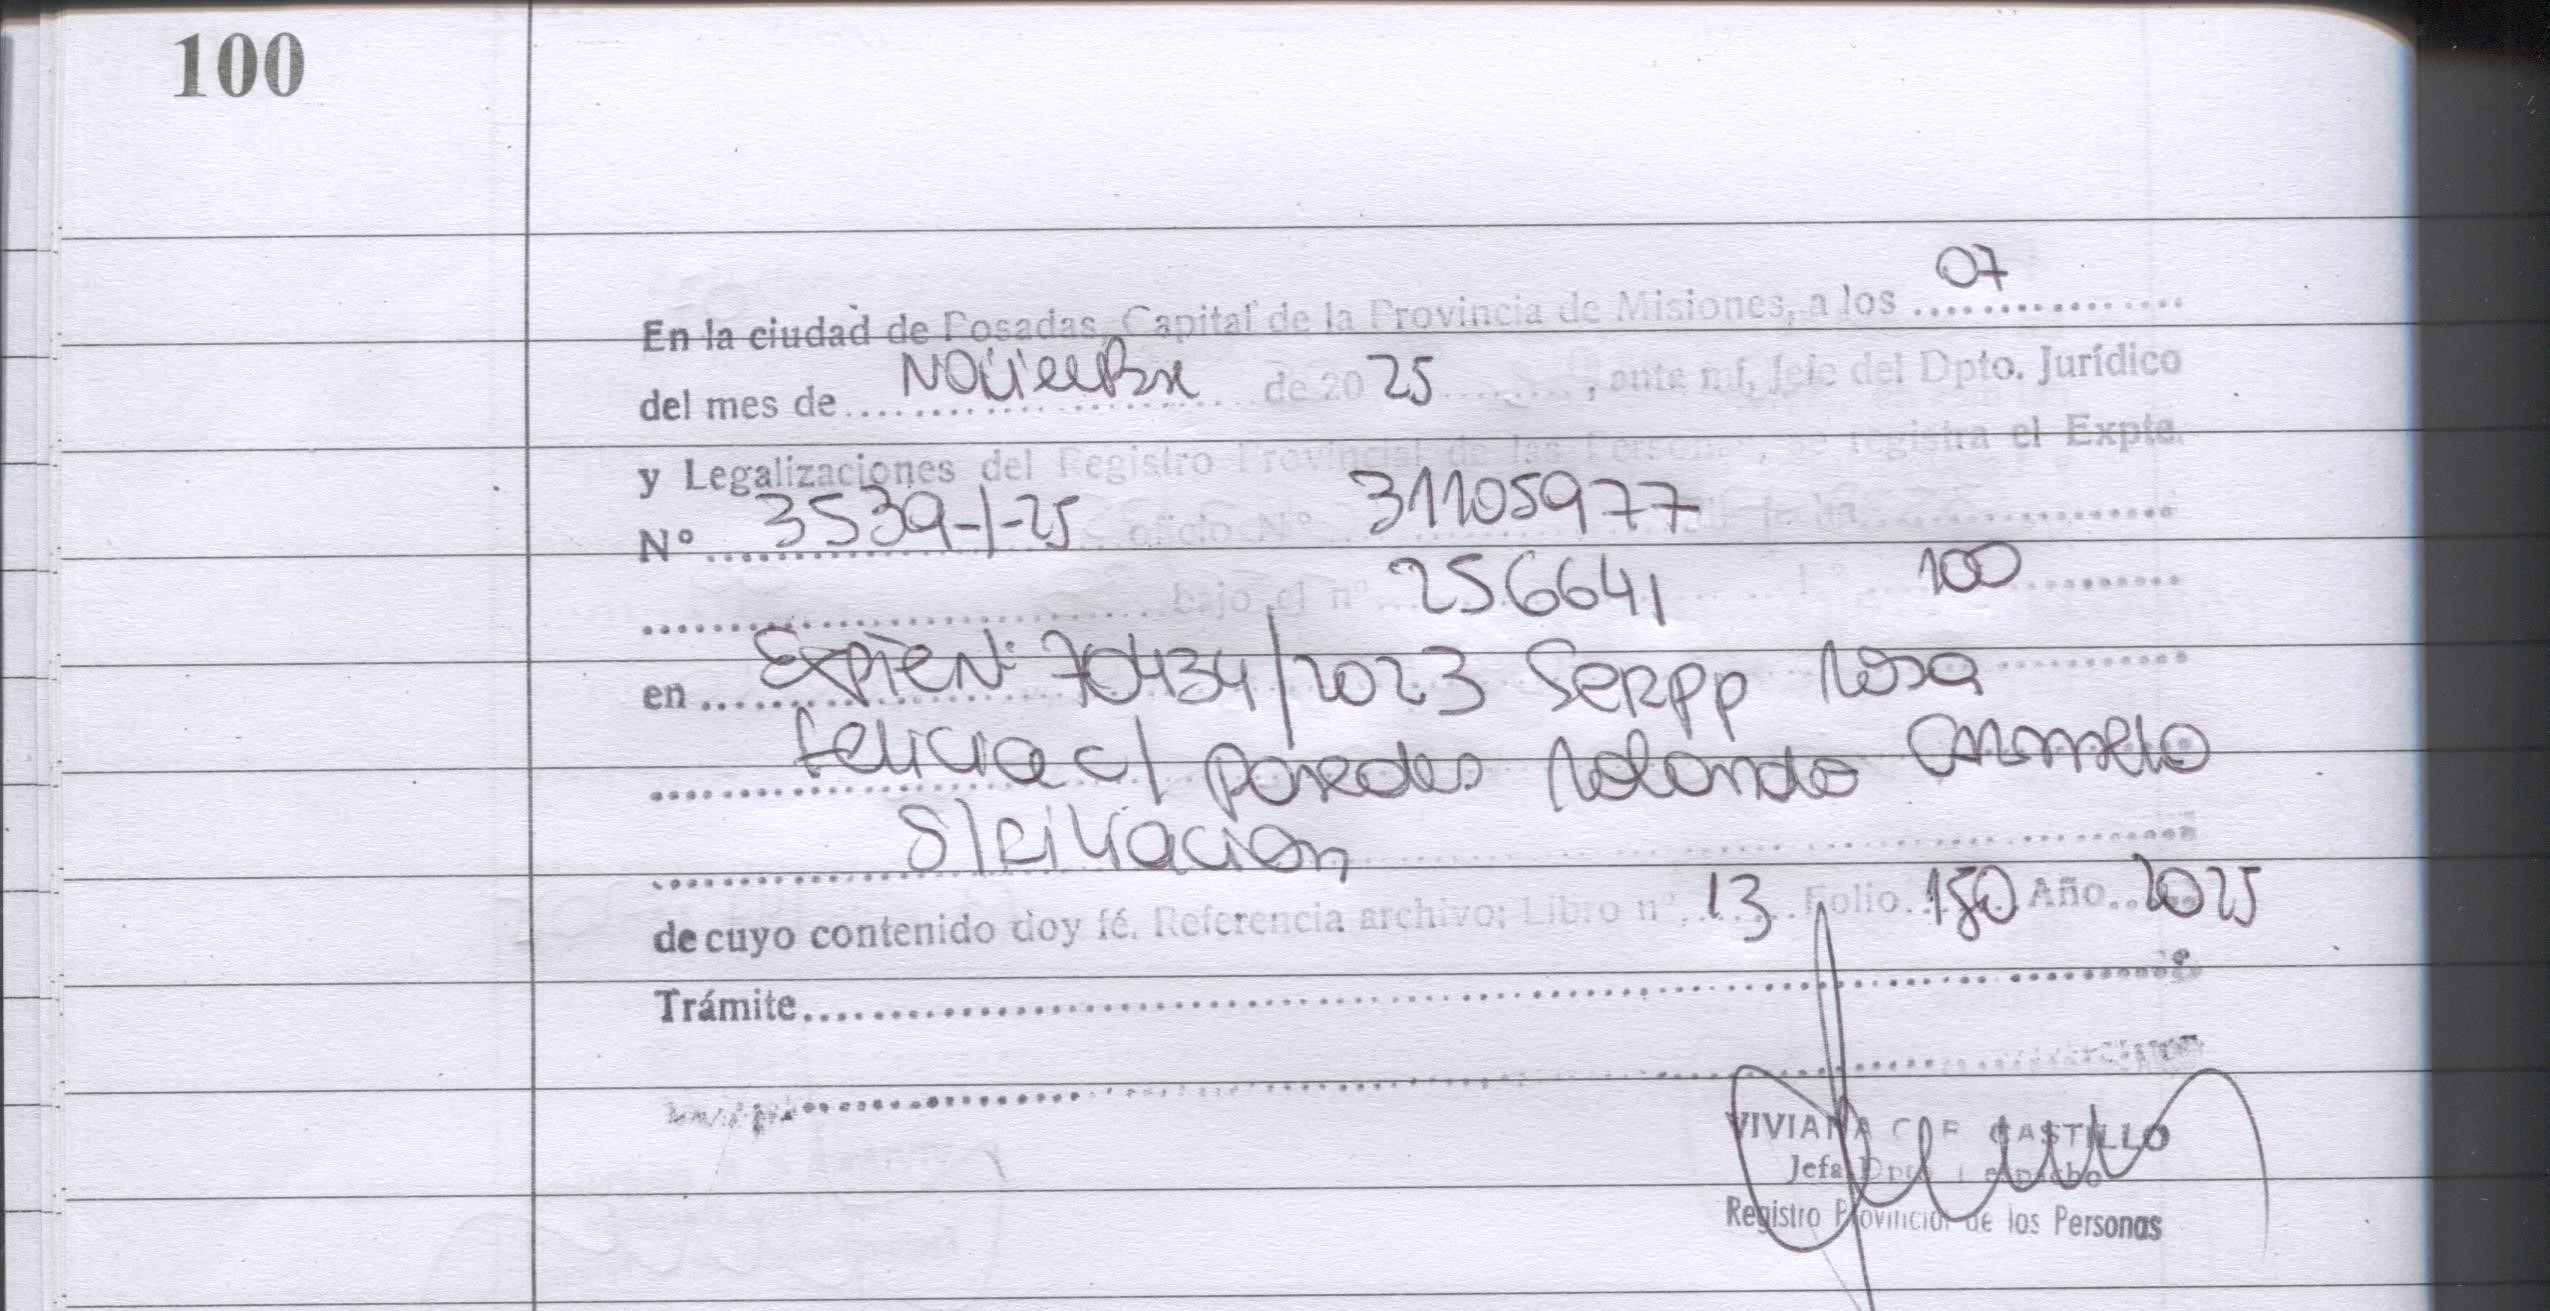 100
En la ciudad de Posadas, Capital de la Provincia de Misiones, a los 07
del mes de Noviembre de 2025, ante mí, Jefe del Dpto. Jurídico
y Legalizaciones del Registro Provincial de las Personas, se registra el Expte.
N° 3539-1-25 oficio N° 31105977 de fecha
bajo el n° 256641 f° 100
en Expte N: 70434/2023 Serpp Rosa
Felicia c/ Paredes Rolando Carmelo
S/Filiacion
de cuyo contenido doy fé. Referencia archivo: Libro n° 13 Folio 150 Año 2025
Trámite
VIVIANA CASTILLO
Jefa Dpto. Despacho
Registro Provincial de las Personas